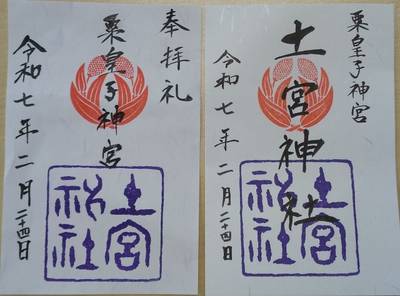 奉拝礼
粟皇子神宮
令和七年二月二十四日
土宮
祝社
粟皇子神宮
土宮神社
令和七年二月二十四日
土宮
祝社